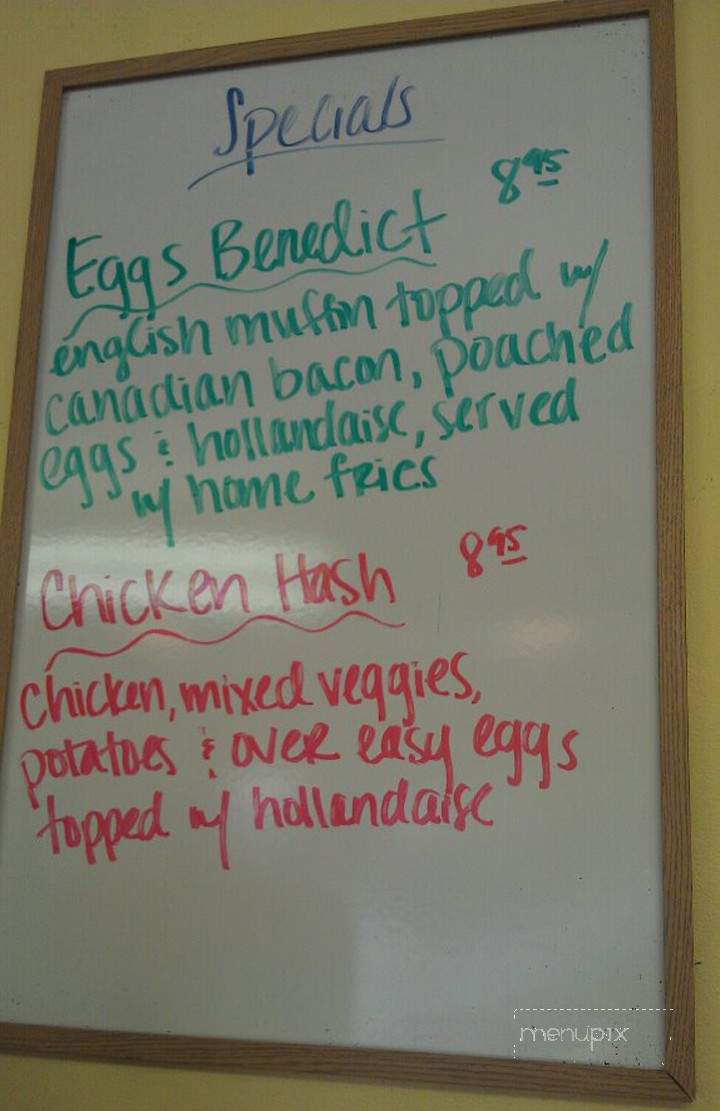 Specials
8.95
Eggs Benedict
english muffin topped w/
canadian bacon, poached
eggs & hollandaise, served
w/ home fries
Chicken Hash 8.95
chicken, mixed veggies,
potatoes & over easy eggs
topped w/ hollandaise
menupix